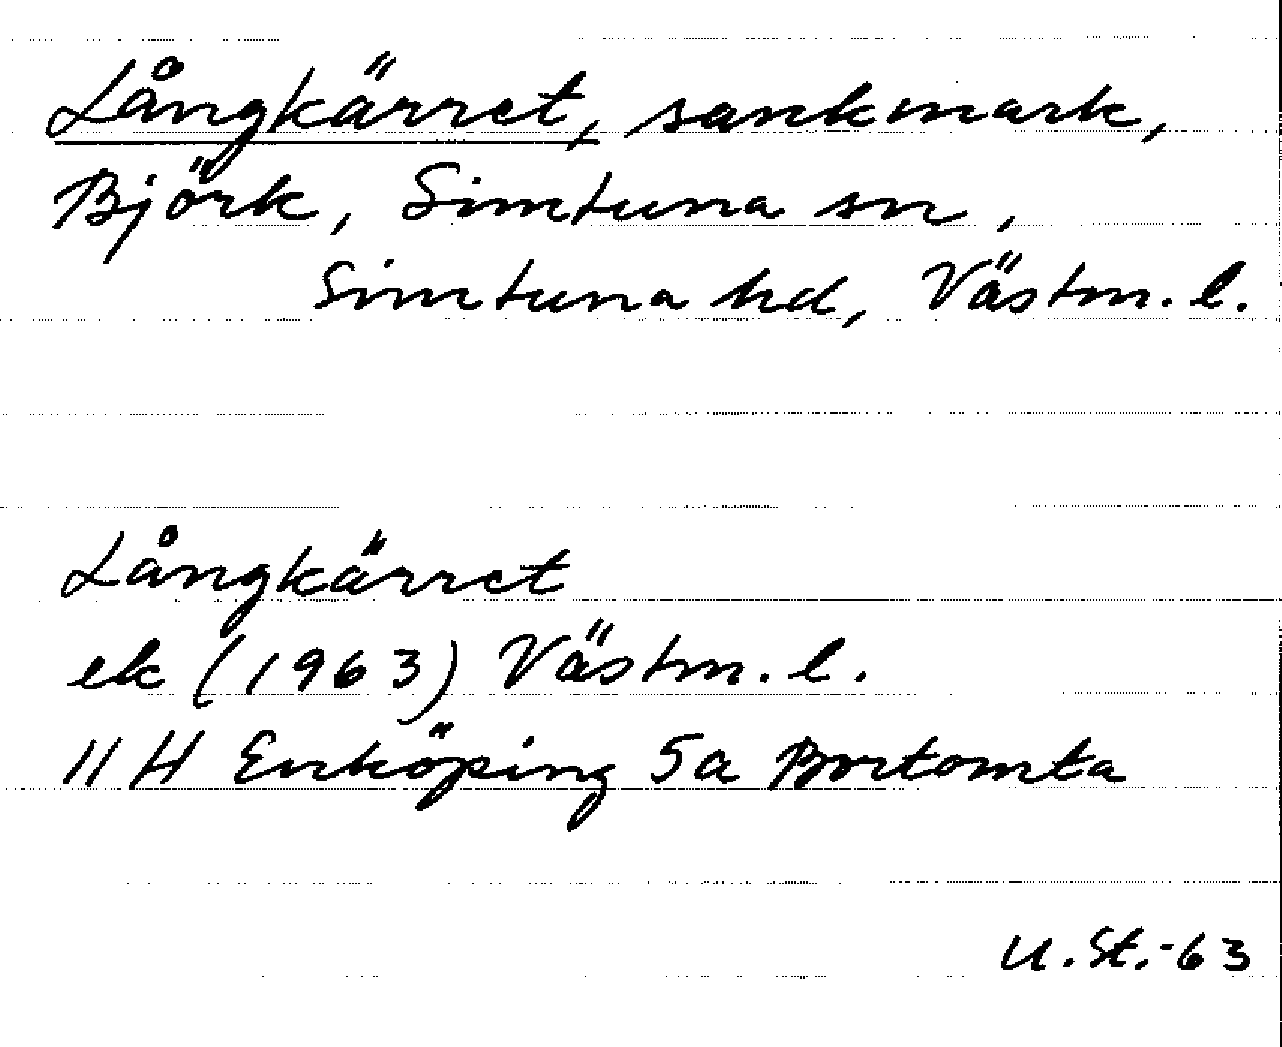 Långkärret, sankmark,
Björk, Simtuna sn,
Simtuna hd, Västm. l.
Långkärret
ek (1963) Västm. l.
11 H Enköping 5a Bortomta
U. St. -63